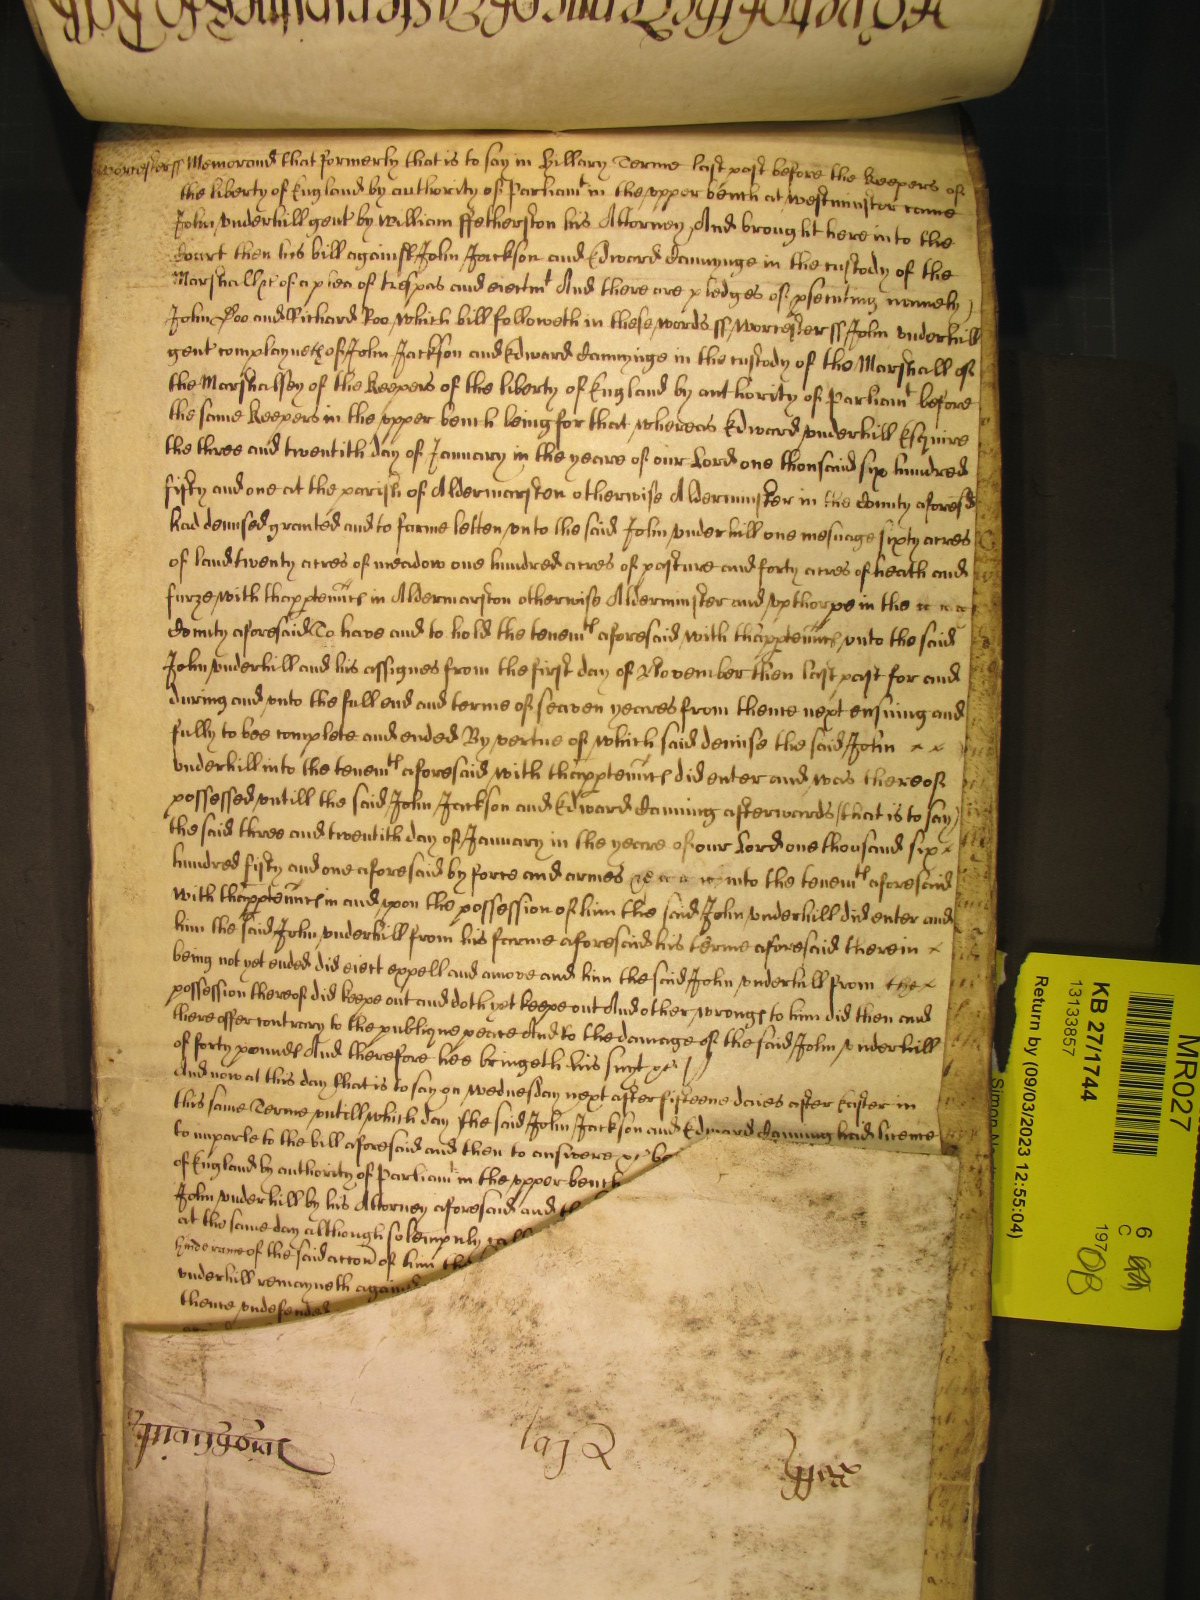 Worcester ss Memorand that formerly that is to say in Hillary Terme last past before the Keepers of
the liberty of England by authority of Parliamt in the upper bench at Westminster came
John Underhill gent by William ffetherston his Attorney And brought here into the
Court then his bill against John Jackson and Edward Canninge in the custody of the
Marshall &c of a plea of trespas and eiectmt And there are pledges of psecuting namely
John Doo and Richard Roo which bill followeth in these words ss Worcester ss John Underhill
gent complayneth of John Jackson and Edward Canninge in the custody of the Marshall of
the Marshalsey of the Keepers of the liberty of England by authority of Parliamt before
the same Keepers in the upper bench being for that whereas Edward Underhill Esquire
the three and twentith day of January in the yeare of our Lord one thousand six hundred
fifty and one at the parish of Aldermarston otherwise Alderminster in the County aforesd
had demised granted and to farme letten unto the said John Underhill one mesuage sixty acres
of land twenty acres of meadow one hundred acres of pasture and forty acres of heath and
furze with thapptenncs in Aldermarston otherwise Alderminster and Upthorpe in the
County aforesaid To have and to hold the tenemts aforesaid with thapptenncs unto the said
John Underhill and his assignes from the first day of November then last past for and
during and unto the full end and terme of seaven yeares from thence next ensuing and
fully to bee complete and ended By vertue of which said demise the said John
Underhill into the tenemts aforesaid with thapptenncs did enter and was thereof
possessed untill the said John Jackson and Edward Canning afterwards (that is to say)
the said three and twentith day of January in the yeare of our Lord one thousand six
hundred fifty and one aforesaid by force and armes &c into the tenemts aforesaid
with thapptenncs in and upon the possession of him the said John Underhill did enter and
him the said John Underhill from his farme aforesaid his terme aforesaid therein
being not yet ended did eiect expell and amove and him the said John Underhill from the
possession thereof did keepe out and doth yet keepe out And other wrongs to him did then and
there offer contrary to the publique peace And to the damage of the said John Underhill
of forty pounds And therefore hee bringeth his suyt &c
And now at this day that is to say on Wednesday next after fifteene daies after Easter in
this same Terme untill which day the said John Jackson and Edward Canning had licence
to imparle to the bill aforesaid and then to answere &c
of England by authority of Parliamt in the upper bench
John Underhill by his Attorney aforesaid and
at the same day although solempnly
of the said accon of him the
Underhill remayneth against
thence undefended
MR027
KB 27/1744
13133857
Return by (09/03/2023 12:55:04)
6
C
197